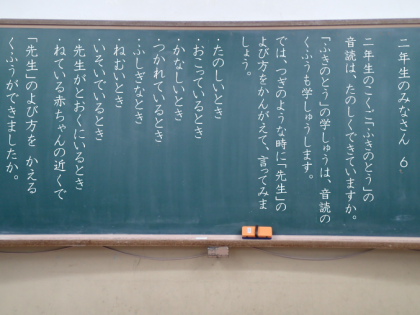 二年生のみなさん 6
二年生のこくご「ふきのとう」の
音読は、たのしくできていますか。
「ふきのとう」の学しゅうは、音読の
くふうも学しゅうします。
では、つぎのような時に「先生」の
よび方をかんがえて、言ってみま
しょう。
・たのしいとき
・おこっているとき
・かなしいとき
・つかれているとき
・ふしぎなとき
・ねむいとき
・いそいでいるとき
・先生がとおくにいるとき
・ねている赤ちゃんの近くで
「先生」のよび方を かえる
くふうができましたか。